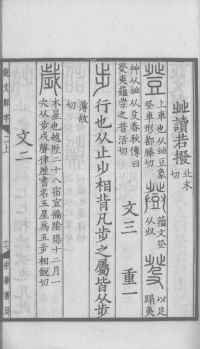 癶讀若撥北末切
上車也从癶豆象登車形都滕切
籒文登从収
以足蹋夷
艸从癶从殳春秋傳曰癹夷薀崇之普活切
文三 重一
行也从止少相背凡步之屬皆从步
薄故切
木星也越歷二十八宿宣徧陰陽十二月一
次从步戌聲律歷書名五星為五步相銳切
文二
說文解字 二上
中華書局